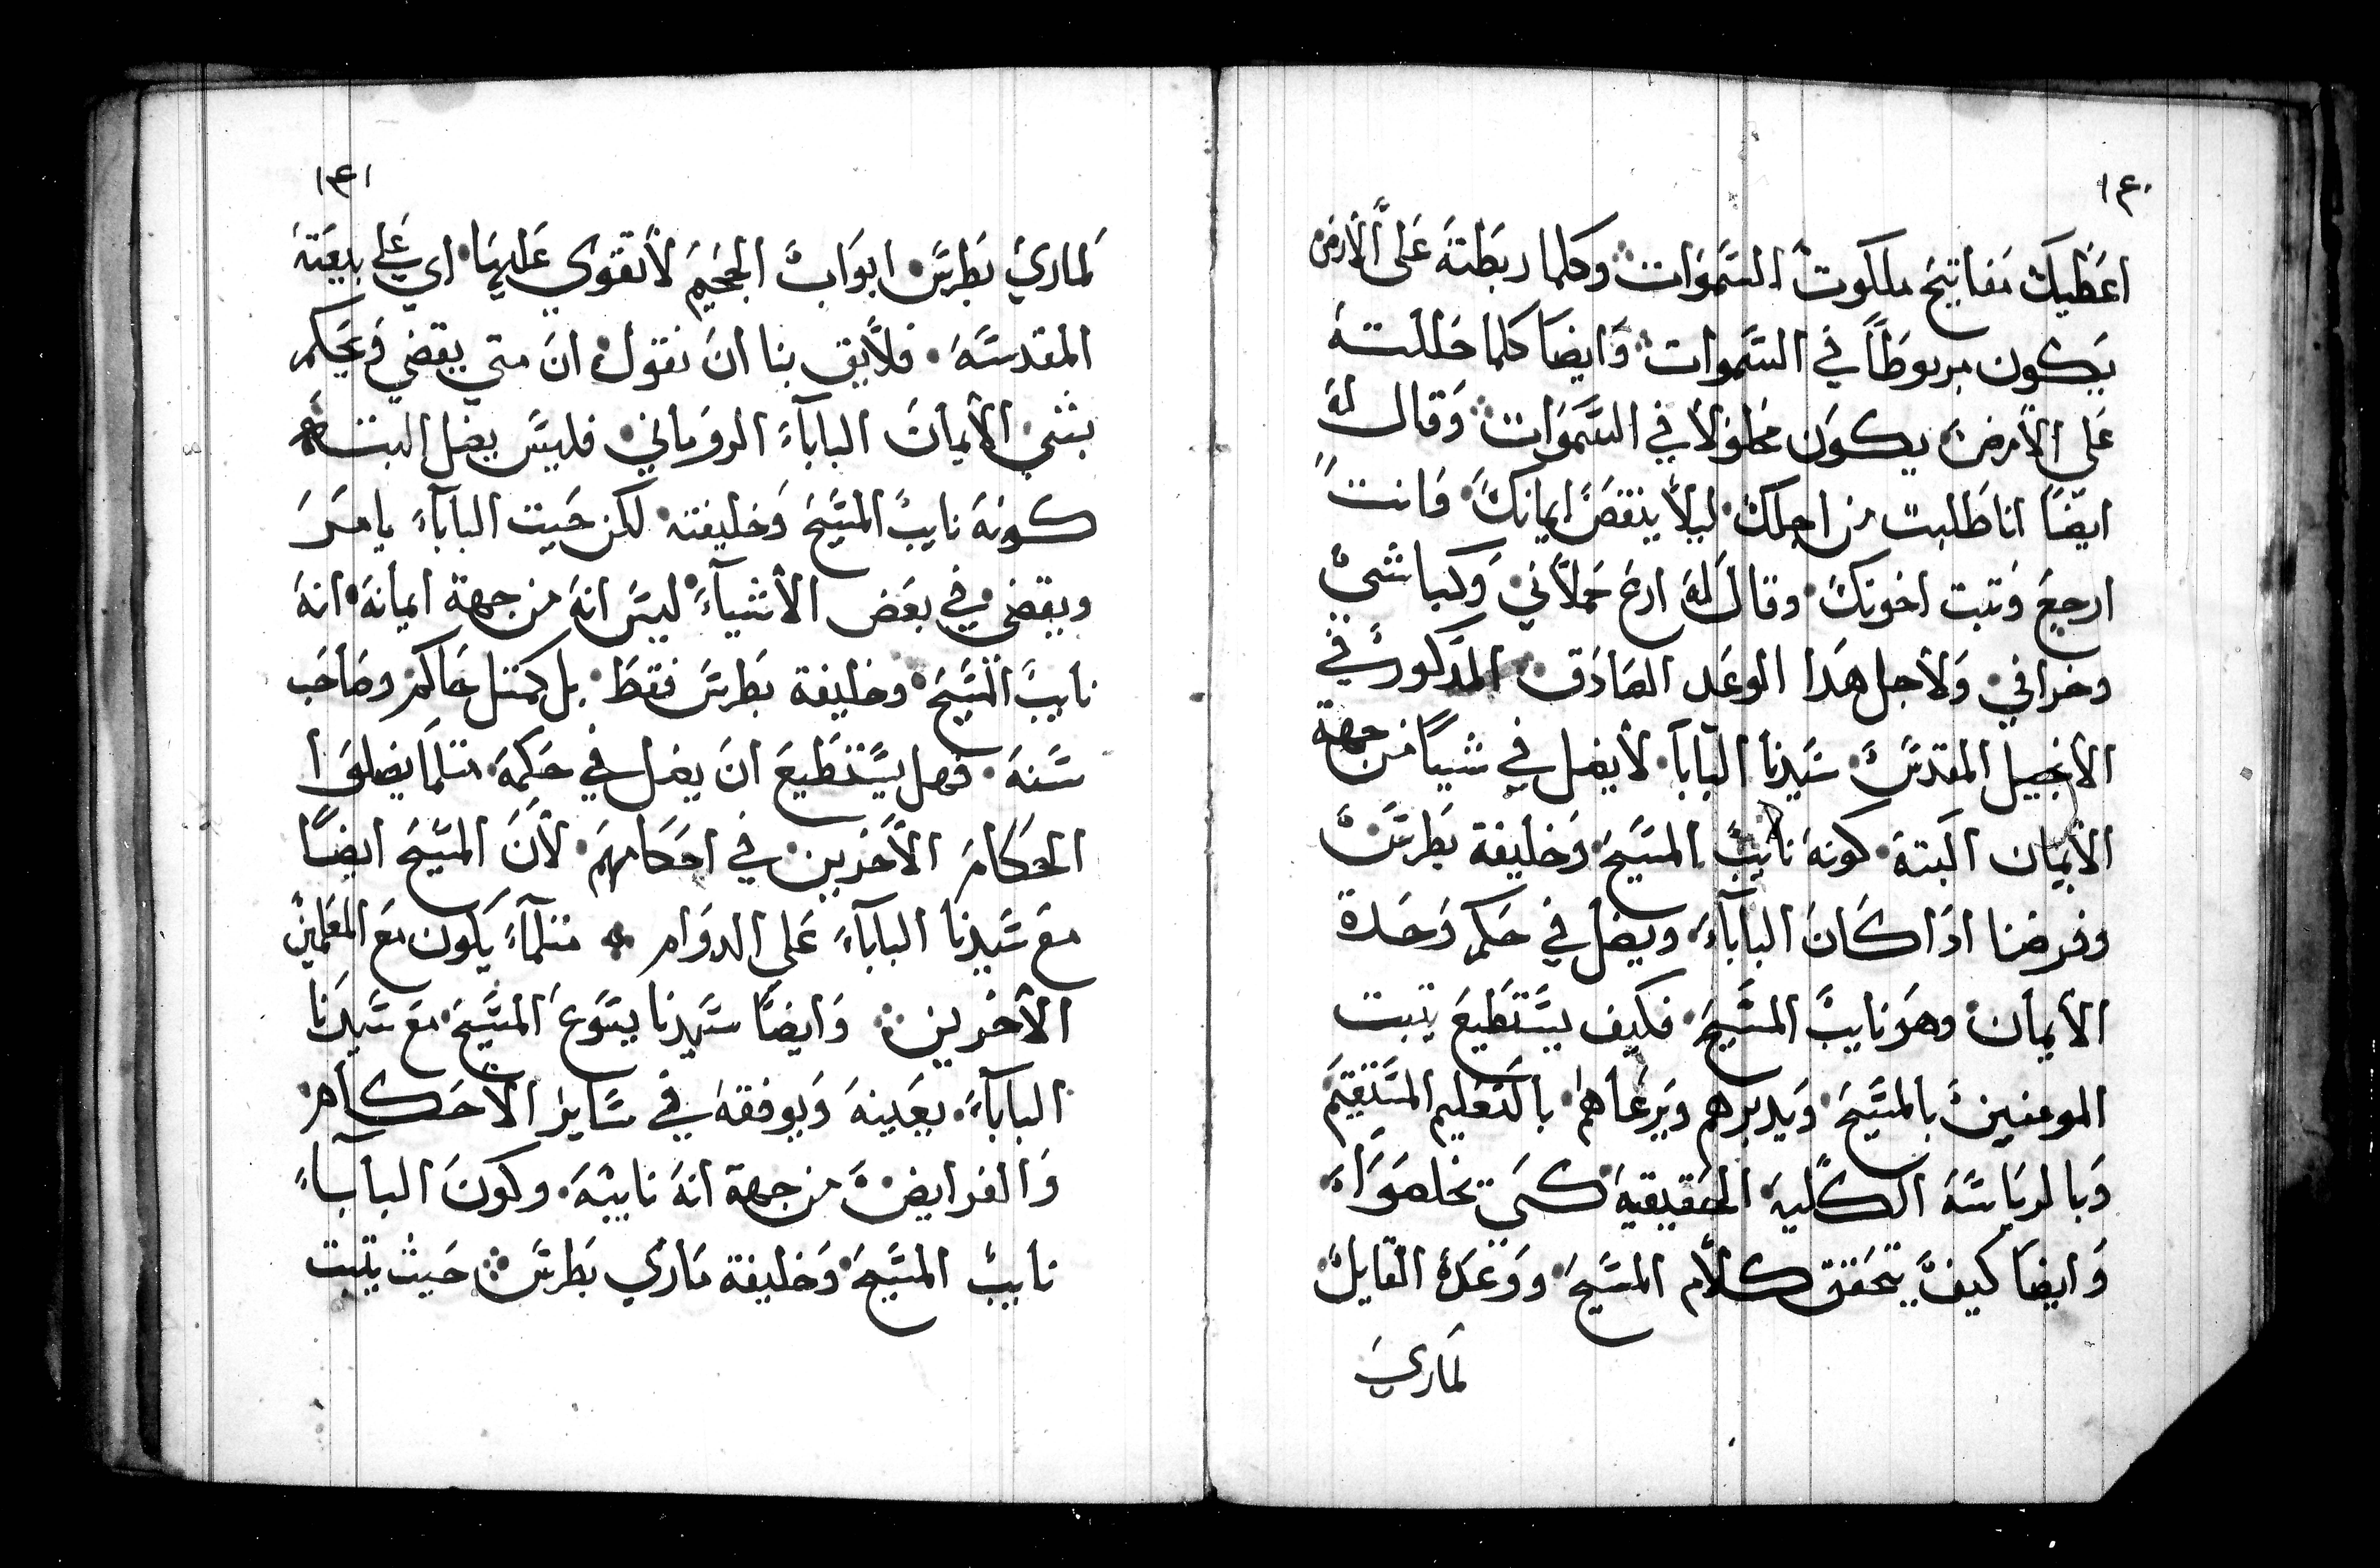 ١٤٠
اعَطيكَ مَفاتيحَ ملكوتَ السَموَات وكلما ربَطتهَ عَلى الأرض
يَكون مربوطَاً في السَموات وَايضَا كلما حَللتهَ
عَلى الأرضَ يكوَن محَلولاً في السَموَات وَقال لهَ
ايضَاً اناطَلبت من اجلكَ ليلاً ينقصَ ايمانكَ وَانتَ
ارجعَ وَتبت اخوتكَ وقال لَهَ ارعَ حَملاني وَكباشي
وخرافي وَلاجل هَدا الوعَد الصَادَق المدَكورَ في
الانجيل المقدسَ سَيدنا البابا لأيضل في شيياً من جهة
الأيمان البتهَ كونهَ نايبَ المسَيحَ وَخليفة بَطرسَ
وفرضنا ادَا كَانَ الباباءَ ويضل في حَكم وَحَدة
الأيمان وهوَ نايبَ المسَيحَ فكيف يسَتَطيعَ يتبت
المومنينَ بالمسَيحَ وَيدبرهم وَيرعَاهم بالتَعَليم المسَتقيمَ
وَبالرياسَهَ الكليهَ الحَقيقيهَ كيَ يخلصوَا
وَايضَا كيفَ يتحَقق كلام المسَيحَ ووَعَدهَ القايلَ
لمَاري
١٤١
لمَاريَ بَطرسَ ابوَابَ الجحَيمَ لأتقوي عَليهَا اي عَلى بيعَتهَ
المقدسَهَ فلأيق بنا انَ نقولَ انَ متي يقضي وَيحَكم
بشي الأيمانَ الباباءَ الروَماني فليسَ يضل البتهَ
كونهَ نايبَ المسَيحَ وَخليفته لكن حَيت الباباءَ يامرَ
ويقضي في بعَض الأشياءَ ليسَ انهَ من جهة ايمانهَ انهَ
نايبَ المسَيحَ وخليفة بَطرسَ فقطَ بل كمتل حَاكم وصَاحَب
سَنهَ فهل يسَتطَيعَ انَ يضل في حَكمهَ متلمَا يضلوَا
الحَكامَ الأخَرين في احَكامهمَ لأنَ المسَيحَ ايضَا
معَ سَيدنا الباباءَ عَلي الدوَام متلماءَ يَكون معَ المعَلمين
الأخَرين وَايضَا سَيدنا يسَوعَ المسَيحَ معَ سَيدنَا
الباباءَ يعَينهَ وَيوفقهَ في سَاير الأحَكام
وَالفرايضَ من جهة انهَ نايبهَ وكونَ الباباءَ
نايبَ المسَيحَ وَخليفة مَاري بَطرسَ حَيث يتبت